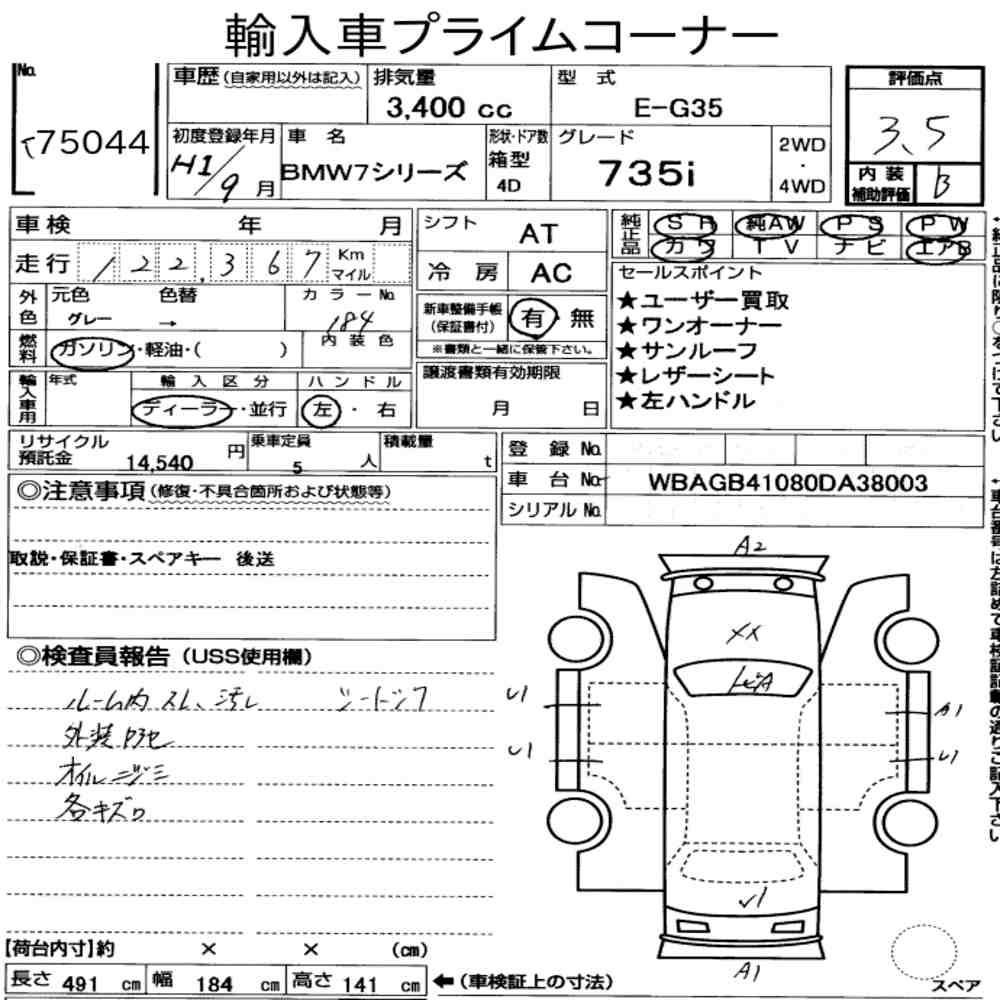 輸入車プライムコーナー
No.
75044
車歴(自家用以外は記入)
排気量
3,400 cc
型 式
E-G35
評価点
3.5
初度登録年月
H1/9 月
車 名
BMW7シリーズ
形状・ドア数
箱型
4D
グレード
735i
2WD
・
4WD
内 装
補助評価
B
車検 年 月
シフト
AT
純正品
SR 純AW PS PW
カワ TV ナビ エアB
走行 122,367 Km
マイル
冷 房
AC
セールスポイント
★ユーザー買取
★ワンオーナー
★サンルーフ
★レザーシート
★左ハンドル
外色
元色 色替
グレー →
カラーNo.
184
新車整備手帳
(保証書付)
有 無
※書類と一緒に保管下さい。
燃料
ガソリン・軽油・( )
内 装 色
輸入車用
年式
輸 入 区 分
ディーラー・並行
ハ ン ド ル
左・右
譲渡書類有効期限
月 日
リサイクル
預託金 14,540 円
乗車定員
5 人
積載量
t
登 録 No.
車 台 No.
WBAGB41080DA38003
シリアル No.
◎注意事項(修復・不具合箇所および状態等)
取説・保証書・スペアキー 後送
◎検査員報告(USS使用欄)
ルーム内スレ、汚レ シートシワ
外装
オイルニジミ
各キズ
A2
XX
トビA
U1
U1
A1
U1
A1
スペア
【荷台内寸】約 × × (cm)
長さ 491 cm 幅 184 cm 高さ 141 cm ←(車検証上の寸法)